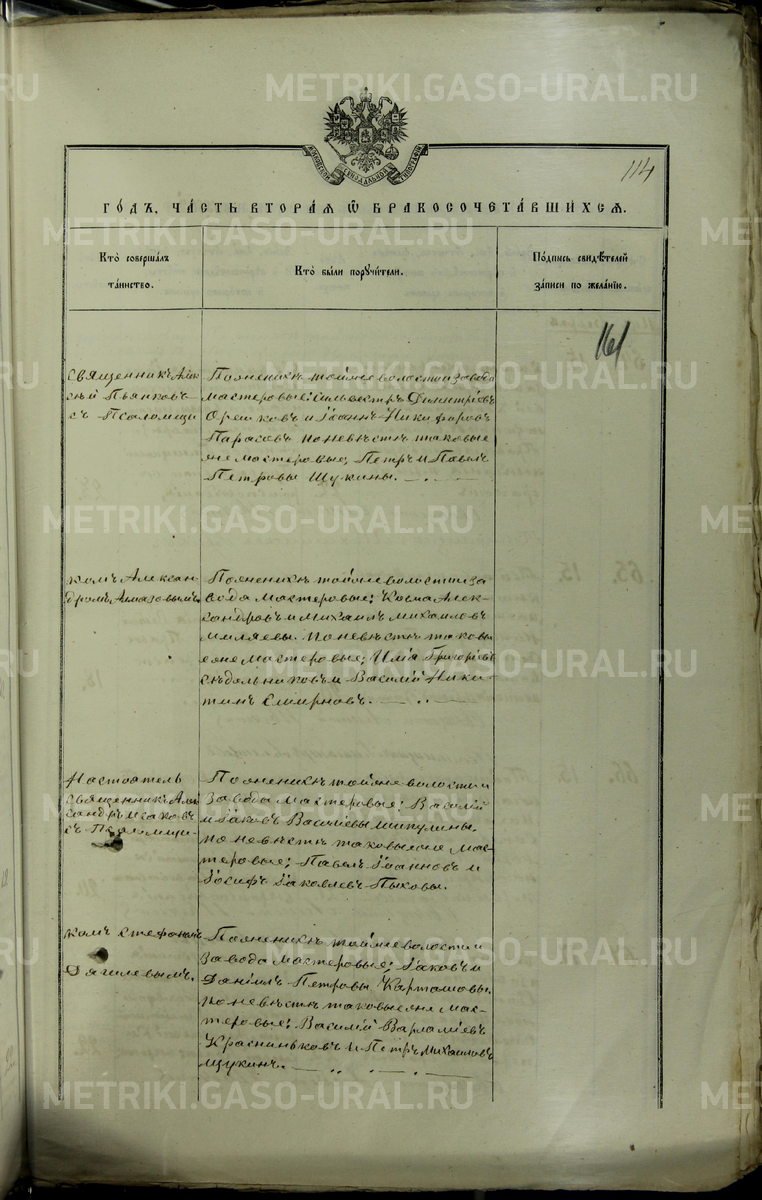 METRIKI.GASO-URAL.RU
114
ГО́ДЪ, ЧА́СТЬ ВТОРА́Я Ѡ БРАКОСОЧЕТА́ВШИХСЯ.
Кто̀ соверша́лъ
та́инство.
Кто̀ бы́ли поручи́тели.
По́дпись свидѣ́телей
за́писи по жела́нію.
161
Священникъ Алек
сѣй Пьянковъ
съ Псаломщи
По женихѣ той же волости и завода
мастеровые: Сильвестръ Димитріевъ
Орешковъ и Іоаннъ Никифоровъ
Парасовъ по невѣстѣ таковые
же мастеровые: Петръ и Павелъ
Петровы Щукины.
комъ Алексан
дромъ Алмазовымъ.
По женихѣ той же волости и за
вода мастеровые: Косма Алек-
сандровъ и Михаилъ Михаиловъ
по невѣстѣ таковы
е же мастеровые: Илія Григоріевъ
Сѣдельниковъ и Василій Ники-
тинъ Смирновъ.
Настоятель
Священникъ Алек
сандръ Исаковъ
съ Псаломщи-
По женихѣ той же волости и
завода мастеровые: Василій
и Іаковъ Василіевы Шипулины.
по невѣстѣ таковые же мас-
теровые: Павелъ Іоанновъ и
Іосифъ Іаковлевъ Пыховы.
комъ Стефаномъ
Дягилевымъ.
По женихѣ той же волости и
завода мастеровые: Іаковъ и
Даніилъ Петровы Карташовы.
по невѣстѣ таковые же мас-
теровые: Василій Варламіевъ
и Петръ Михаиловъ
Щукинъ.